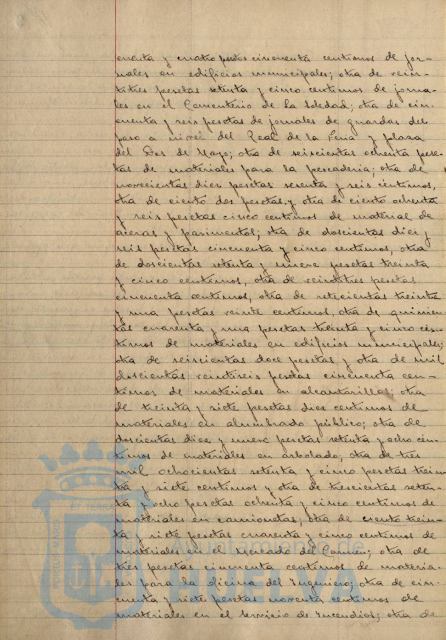 cuenta y cuatro pesetas cincuenta centimos de jor-
nales en edificios municipales; otra de vein-
titres pesetas setenta y cinco centimos de jorna-
les en el Cementerio de la Soledad; otra de cin-
cuenta y seis pesetas de jornales de guardas del
paso a nivel del Real de la Feria y plaza
del Dos de Mayo; otra de seiscientas ochenta pese-
tas de materiales para la pescaderia; otra de
novecientas diez pesetas sesenta y seis centimos,
otra de ciento dos pesetas y otra de ciento ochenta
y seis pesetas cinco centimos de material de
aceras y pavimentos; otra de doscientas diez y
seis pesetas cincuenta y cinco centimos, otra
de doscientas setenta y nueve pesetas treinta
y cinco centimos, otra de veintitres pesetas
cincuenta centimos, otra de setecientas treinta
y una pesetas veinte centimos, otra de quinien-
tas cuarenta y una pesetas treinta y cinco cen-
timos de materiales en edificios municipales;
otra de seiscientas doce pesetas y otra de mil
doscientas veintiseis pesetas cincuenta cen-
timos de materiales en alcantarillas; otra
de treinta y siete pesetas diez centimos de
materiales en alumbrado público; otra de
doscientas diez y nueve pesetas setenta y ocho cen-
timos de materiales en arbolado; otra de tres
mil ochocientas setenta y cinco pesetas trein-
ta y siete centimos y otra de trescientas seten-
ta y ocho pesetas ochenta y cinco centimos de
materiales en camionetas; otra de ciento trein-
ta y siete pesetas cuarenta y cinco centimos de
materiales en el Mercado del Carmen; otra de
tres pesetas cincuenta centimos de materia-
les para la oficina del Ingeniero; otra de cin-
cuenta y siete pesetas noventa centimos de
materiales en el servicio de Incendios; otra de